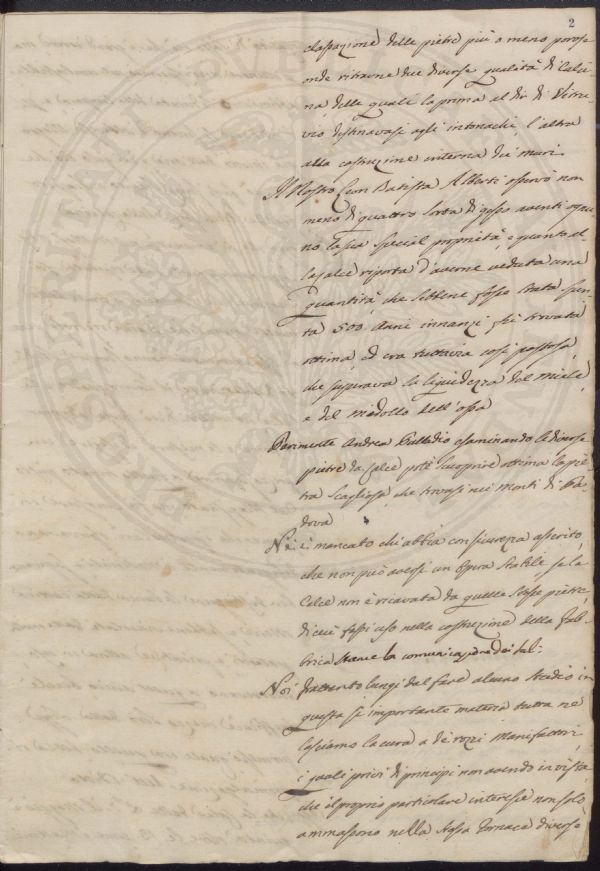 2
classazione delle pietre più o meno porose
onde ritrarne due diverse qualità di Calci-
na, delle quali la prima al dir di Vitru-
vio destinavasi agli intonachi, l'altra
alla costruzione interna dei muri.
Il Nostro Leon Batista Alberti osservò non
meno di quattro sorta di gesso aventi ognu-
no la sua special proprietà, e quanto al-
la calce riporta d'averne veduta una
quantità, che sebbene fosse stata spen-
ta 500 Anni innanzi fù trovata
ottima, ed era tuttavia così pastosa,
che superava la liquidezza del miele,
e del midollo dell'ossa
Parimente Andrea Palladio esaminando le diverse
pietre da calce potè scuoprire ottima la pie-
tra Scagliosa, che trovasi nei Monti di Pa-
dova
Nè è mancato chi abbia con sicurezza asserito,
che non può aversi un Opera Stabile se la
Calce non è ricavata da quelle stesse pietre,
di cui fassi uso nella costruzione della Fab-
brica stante la comunicazione dei Sali.
Noi frattanto lungi dal fare alcuno Studio in
questa sì importante materia tutta ne
lasciamo la cura a de rozzi Manifattori,
i quali privi di principj non avendo in vista
che il proprio particolare interesse non solo
ammassono nella stessa Fornace diverse